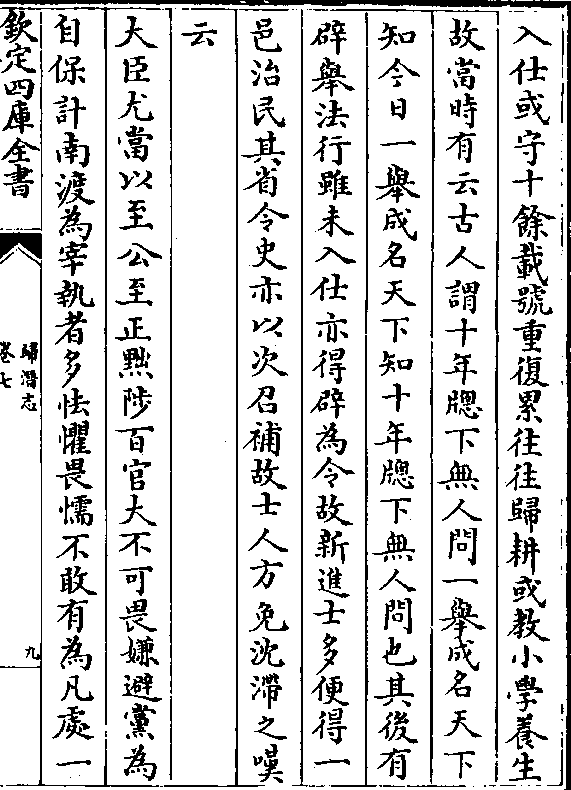 入仕或守十餘載號重復累往往歸耕或教小學養生
故當時有云古人謂十年牕下無人問一舉成名天下
知今日一舉成名天下知十年牕下無人問也其後有
辟舉法行雖未入仕亦得辟為令故新進士多便得一
邑治民其省令史亦以次召補故士人方免沈滯之嘆
云
大臣尤當以至公至正黜陟百官大不可畏嫌避黨為
自保計南渡為宰執者多怯懼畏懦不敢有為凡處一
欽定四庫全書
歸潛志
卷七
九